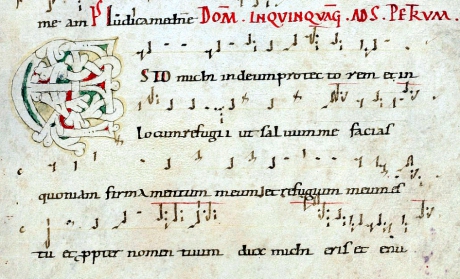 me am Ps Iudica me dne DOM. IN QUINQUAG. AD S. PETRUM.
ESTO michi in deum protectorem et in
locum refugii ut salvum me facias
quoniam firmamentum meum et refugium meum es
tu et ppter nomen tuum dux michi eris et enu